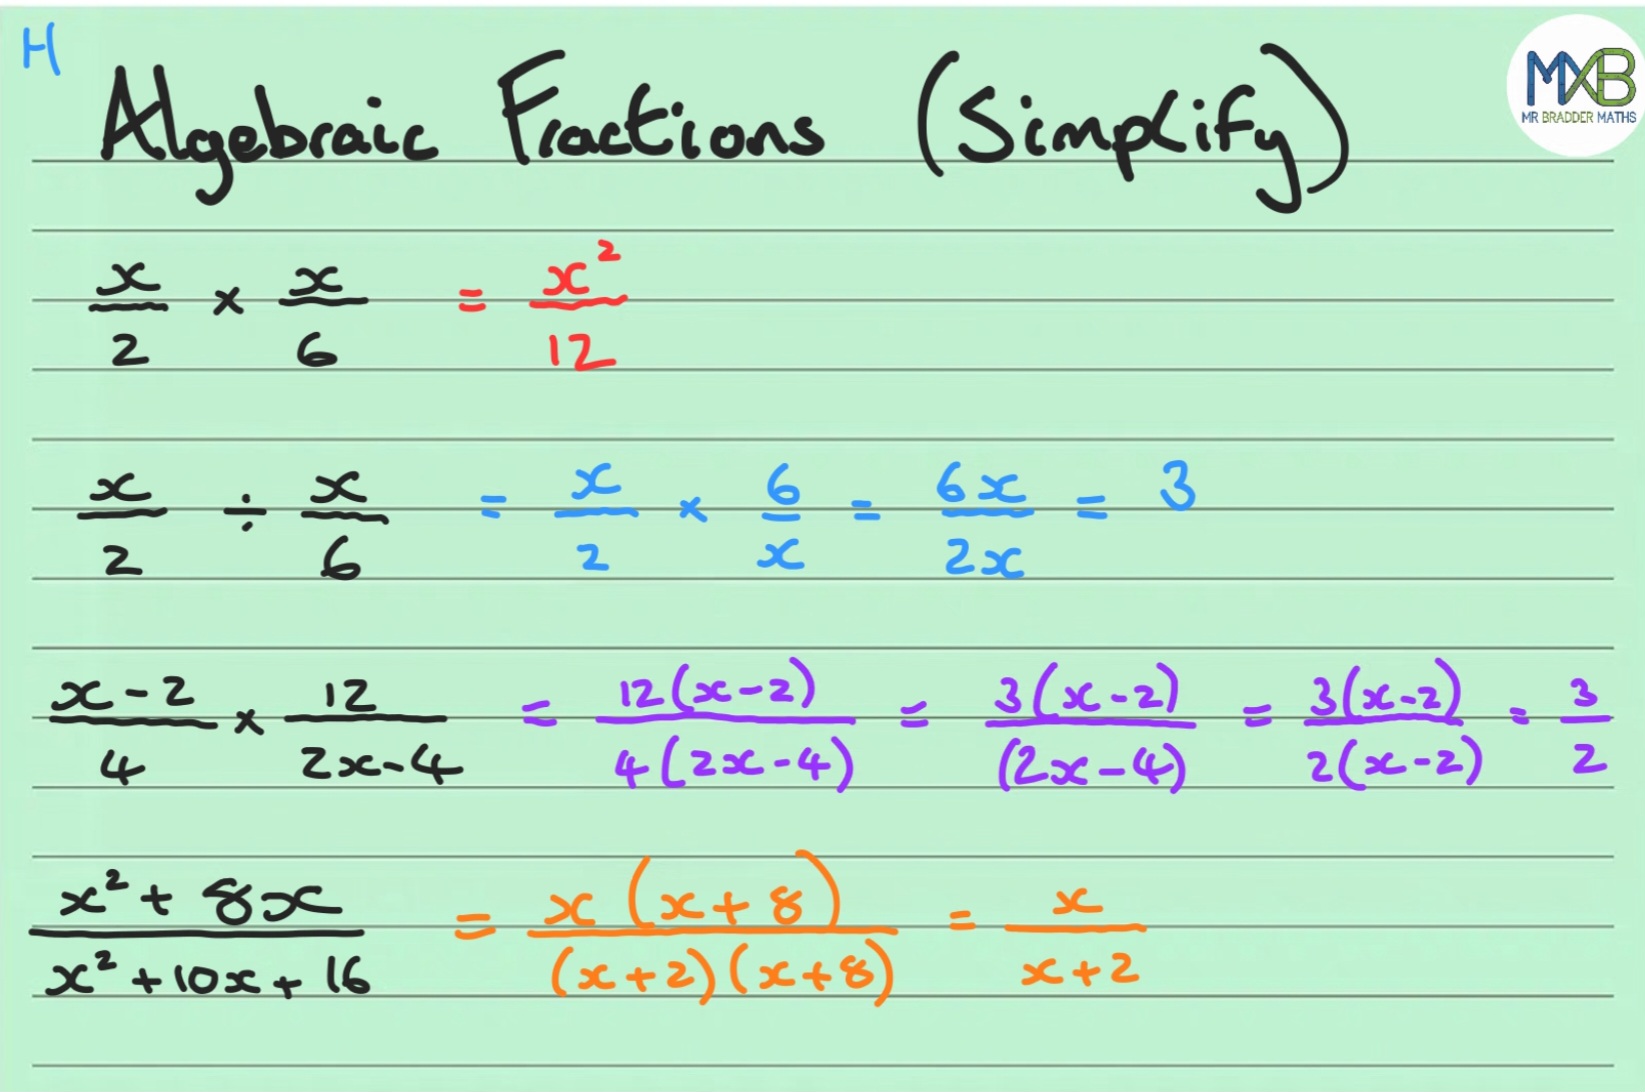 H
Algebraic Fractions (Simplify)
MXB
MR BRADDER MATHS
x/2 × x/6 = x²/12
x/2 ÷ x/6 = x/2 × 6/x = 6x/2x = 3
(x-2)/4 × 12/(2x-4) = 12(x-2)/4(2x-4) = 3(x-2)/(2x-4) = 3(x-2)/2(x-2) = 3/2
(x²+8x)/(x²+10x+16) = x(x+8)/(x+2)(x+8) = x/(x+2)